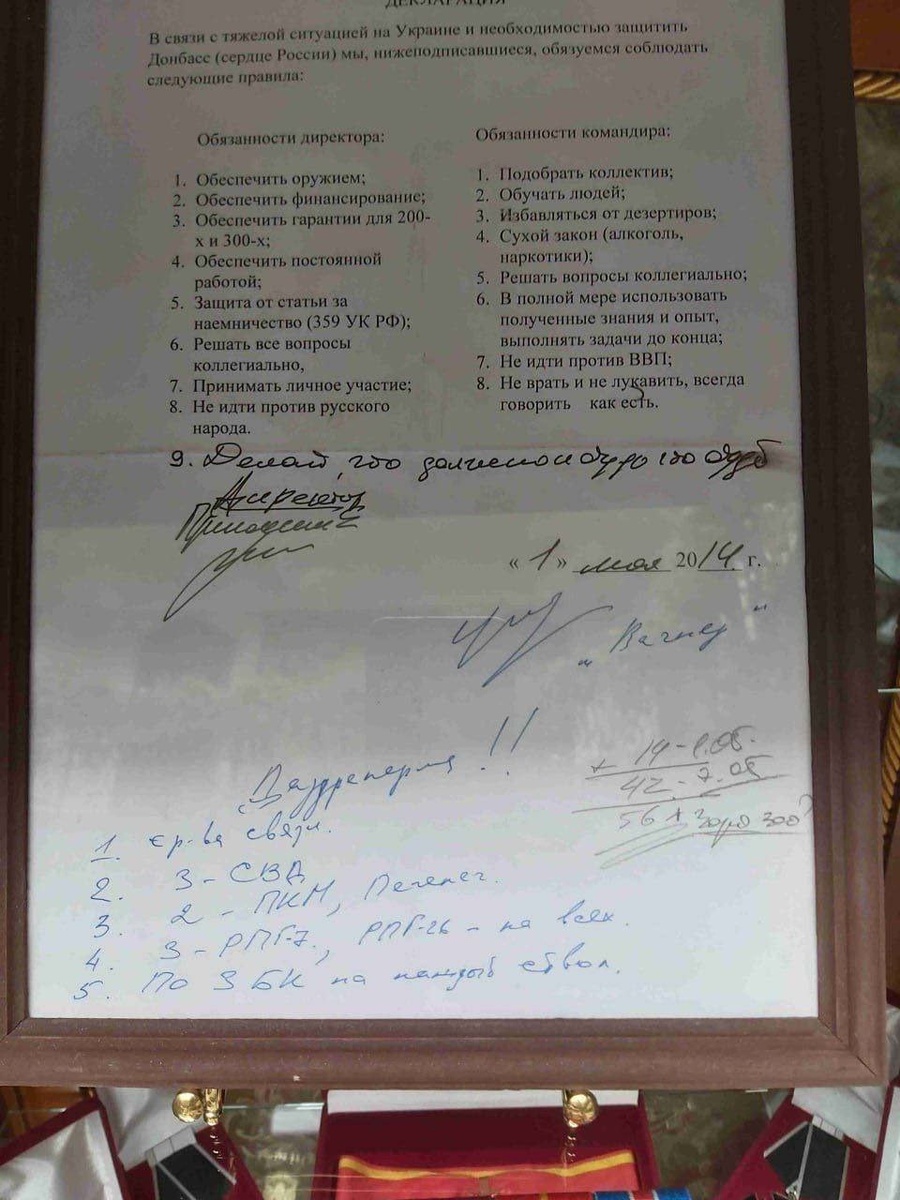 ДЕКЛАРАЦИЯ
В связи с тяжелой ситуацией на Украине и необходимостью защитить
Донбасс (сердце России) мы, нижеподписавшиеся, обязуемся соблюдать
следующие правила:
Обязанности директора:
1. Обеспечить оружием;
2. Обеспечить финансирование;
3. Обеспечить гарантии для 200-
х и 300-х;
4. Обеспечить постоянной
работой;
5. Защита от статьи за
наемничество (359 УК РФ);
6. Решать все вопросы
коллегиально,
7. Принимать личное участие;
8. Не идти против русского
народа.
Обязанности командира:
1. Подобрать коллектив;
2. Обучать людей;
3. Избавляться от дезертиров;
4. Сухой закон (алкоголь,
наркотики);
5. Решать вопросы коллегиально;
6. В полной мере использовать
полученные знания и опыт,
выполнять задачи до конца;
7. Не идти против ВВП;
8. Не врать и не лукавить, всегда
говорить как есть.
9. Делай, что должно и будь что будет
Директор
Пригожин
« 1 » мая 2014 г.
„Вагнер"
!!
1. ср-ва связи.
2. 3 - СВД
3. 2 - ПКМ, Печенег.
4. 3 - РПГ-7, РПГ-26 - на всех.
5. По 3 БК на каждый ствол.
+ 14 - 1.05.
42 - 7.05
56